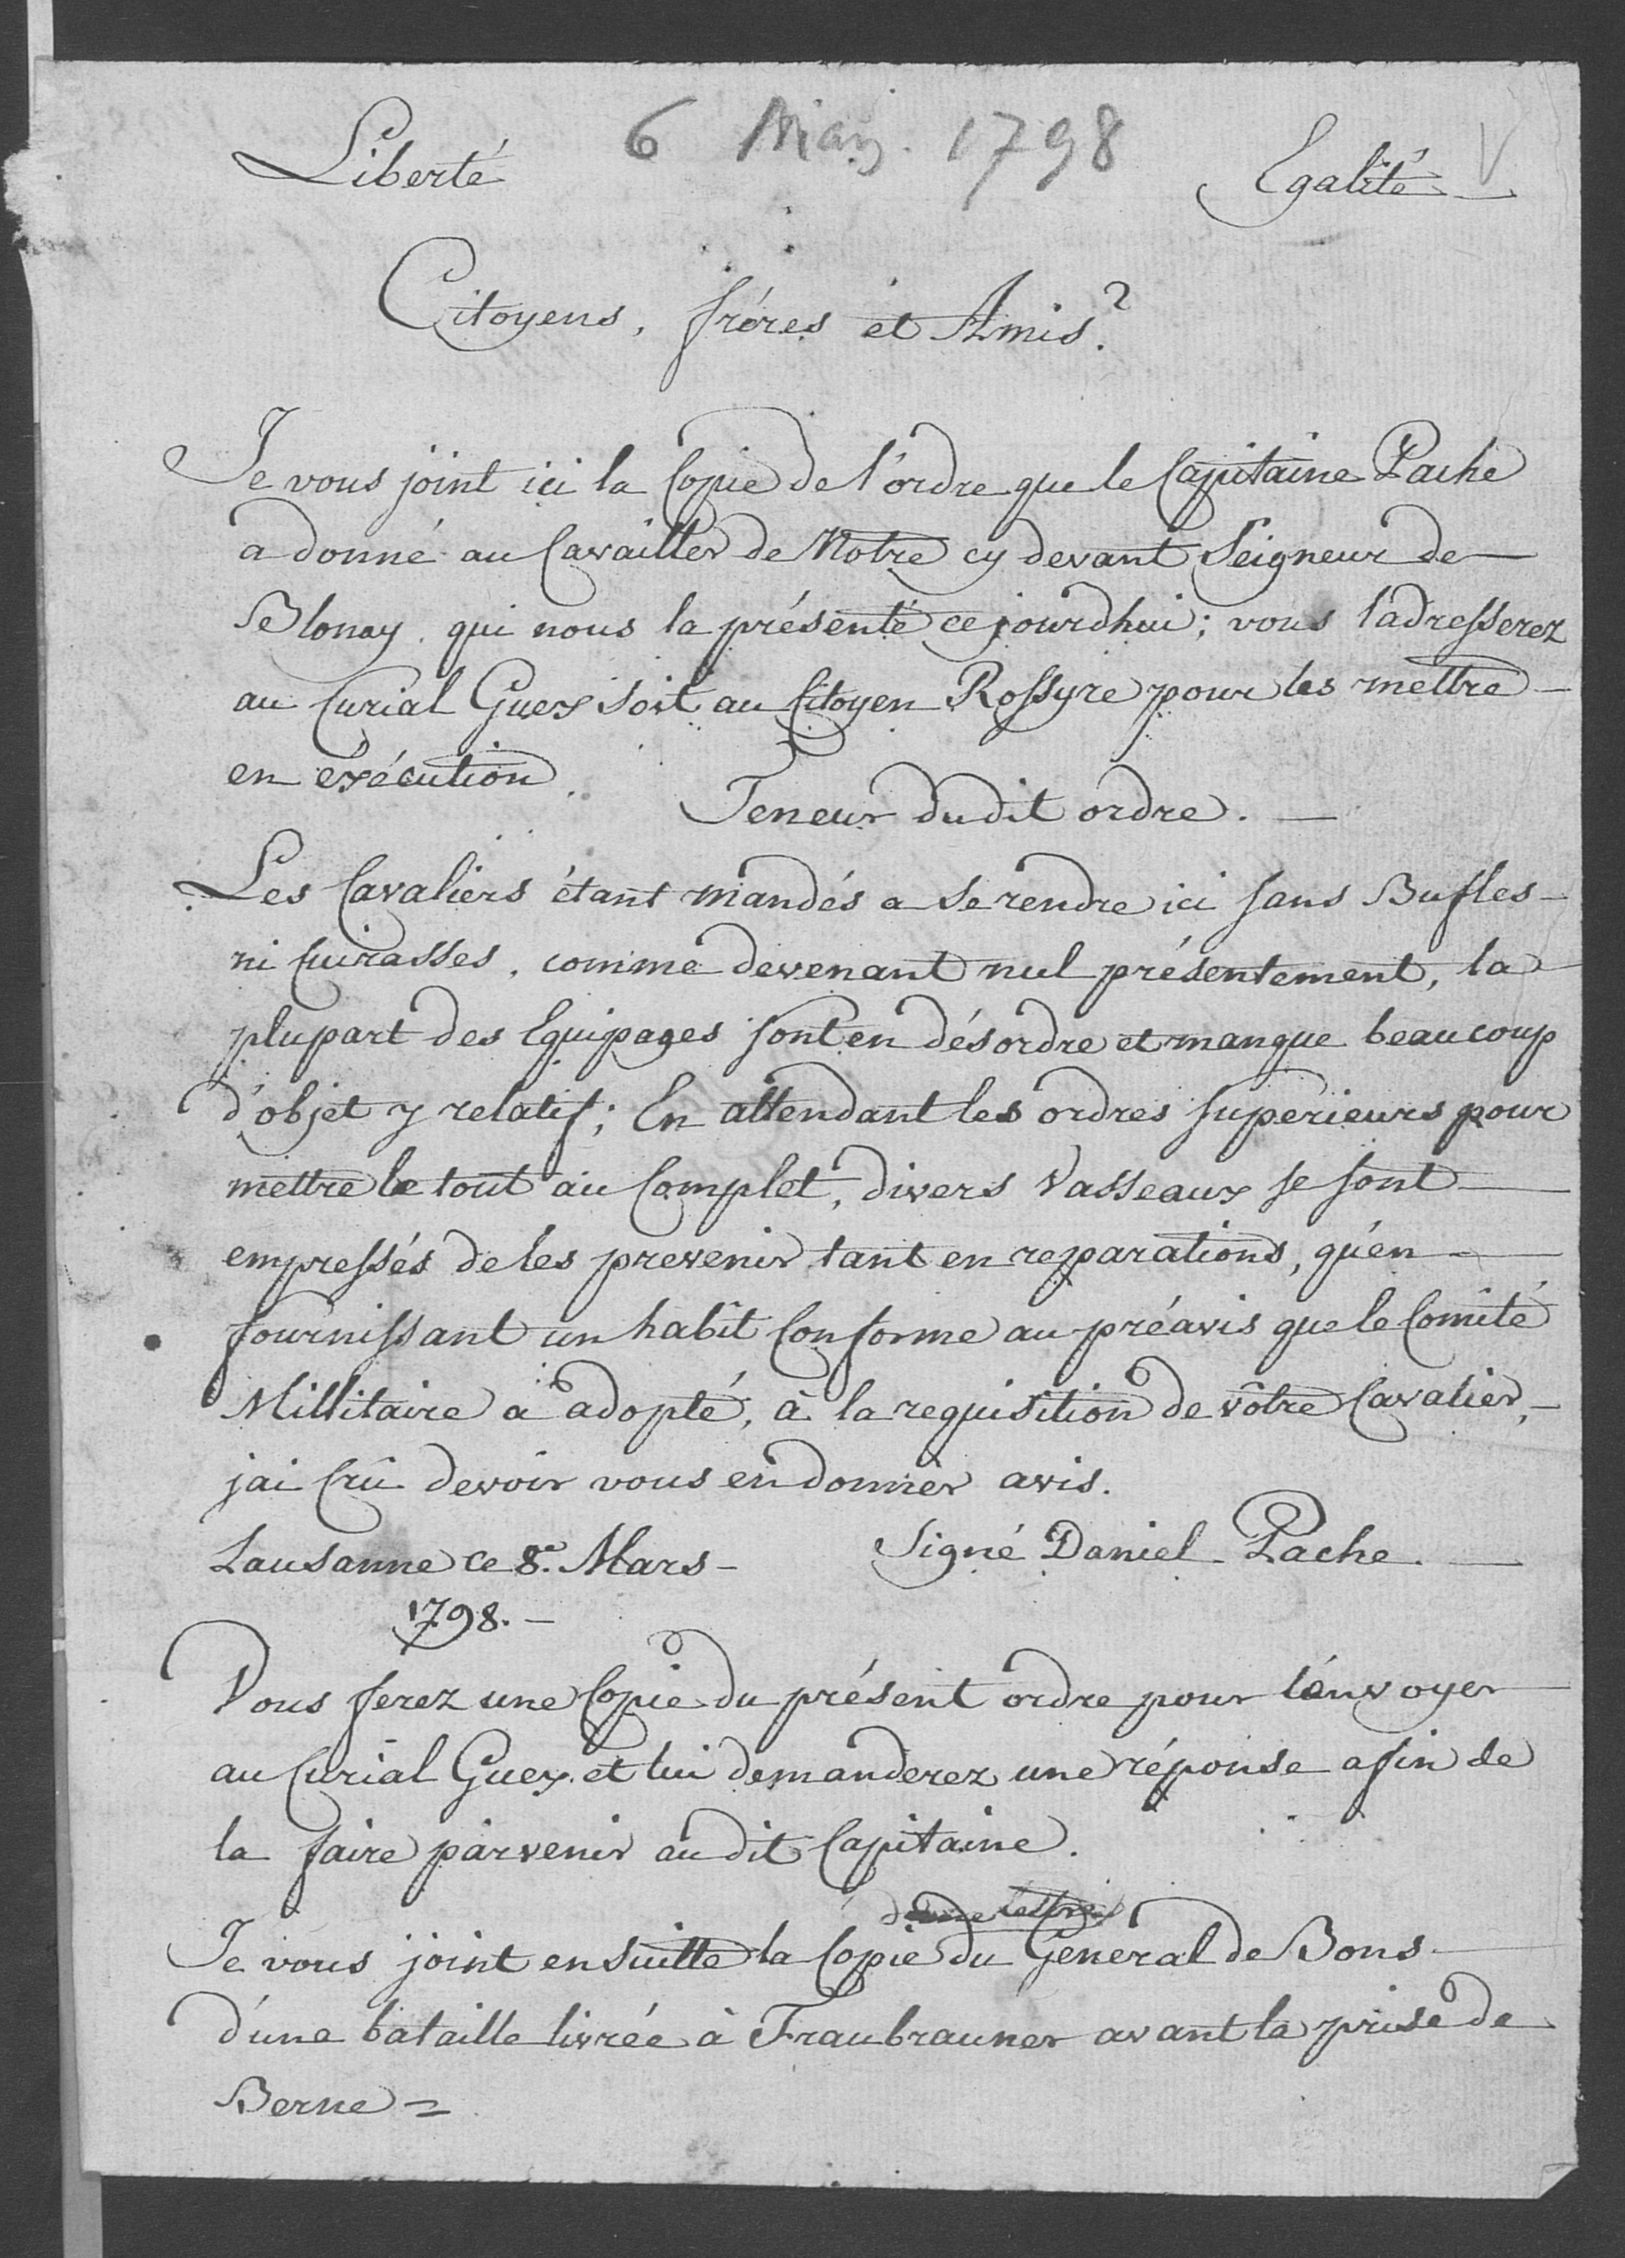 6 May. 1798
Liberté Egalité V
Citoyens, fréres et Amis?
Je vous joint ici la Copie de l'ordre que le Capitaine Pache
a donné au Cavailler de Notre cy devant Seigneur de
Blonay. qui nous la présenté cejourdhui; vous l'adresserez
au Curial Guex soit au Citoyen Rossyre pour les mettre
en éxécution.
Teneur dudit ordre.
Les Cavaliers étant mandés a se rendre ici sans Bufles
ni Cuirasses, comme devenant nul présentement, la
plupart des Equipages sont en désordre et manque beaucoup
d'objet y relatif; En attendant les ordres superieurs pour
mettre le tout au Complet, divers Vasseaux se sont
empressés de les prevenir tant en reparations, qu'en
fournissant un habit Conforme au préavis que le Comité
Millitaire a adopté, à la requisition de vôtre Cavalier,
jai Crû devoir vous en donner avis.
Lausanne ce 8e. Mars Signé Daniel Pache.
1798.
Vous ferez une Copie du présent ordre pour l'envoyer
au Curial Guex et lui demanderez une réponse afin de
la faire parvenir au dit Capitaine.
Je vous joint ensuitte la Copie du General de Bons
d'une bataille livrée à Fraubrauner avant la prise de
Berne =